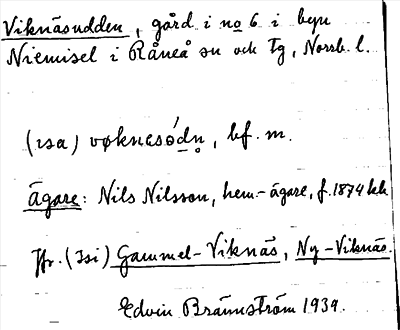 Viknäsudden, gård i no 6 i byn
Niemisel i Råneå sn och tg, Norrb. l.
(ɪsa) vøknesó̀dn̥, bf. m.
Ägare: Nils Nilsson, hem.-ägare, f. 1874 kb
Jfr. (Isi) Gammel-Viknäs, Ny-Viknäs.
Edvin Brännström 1939.